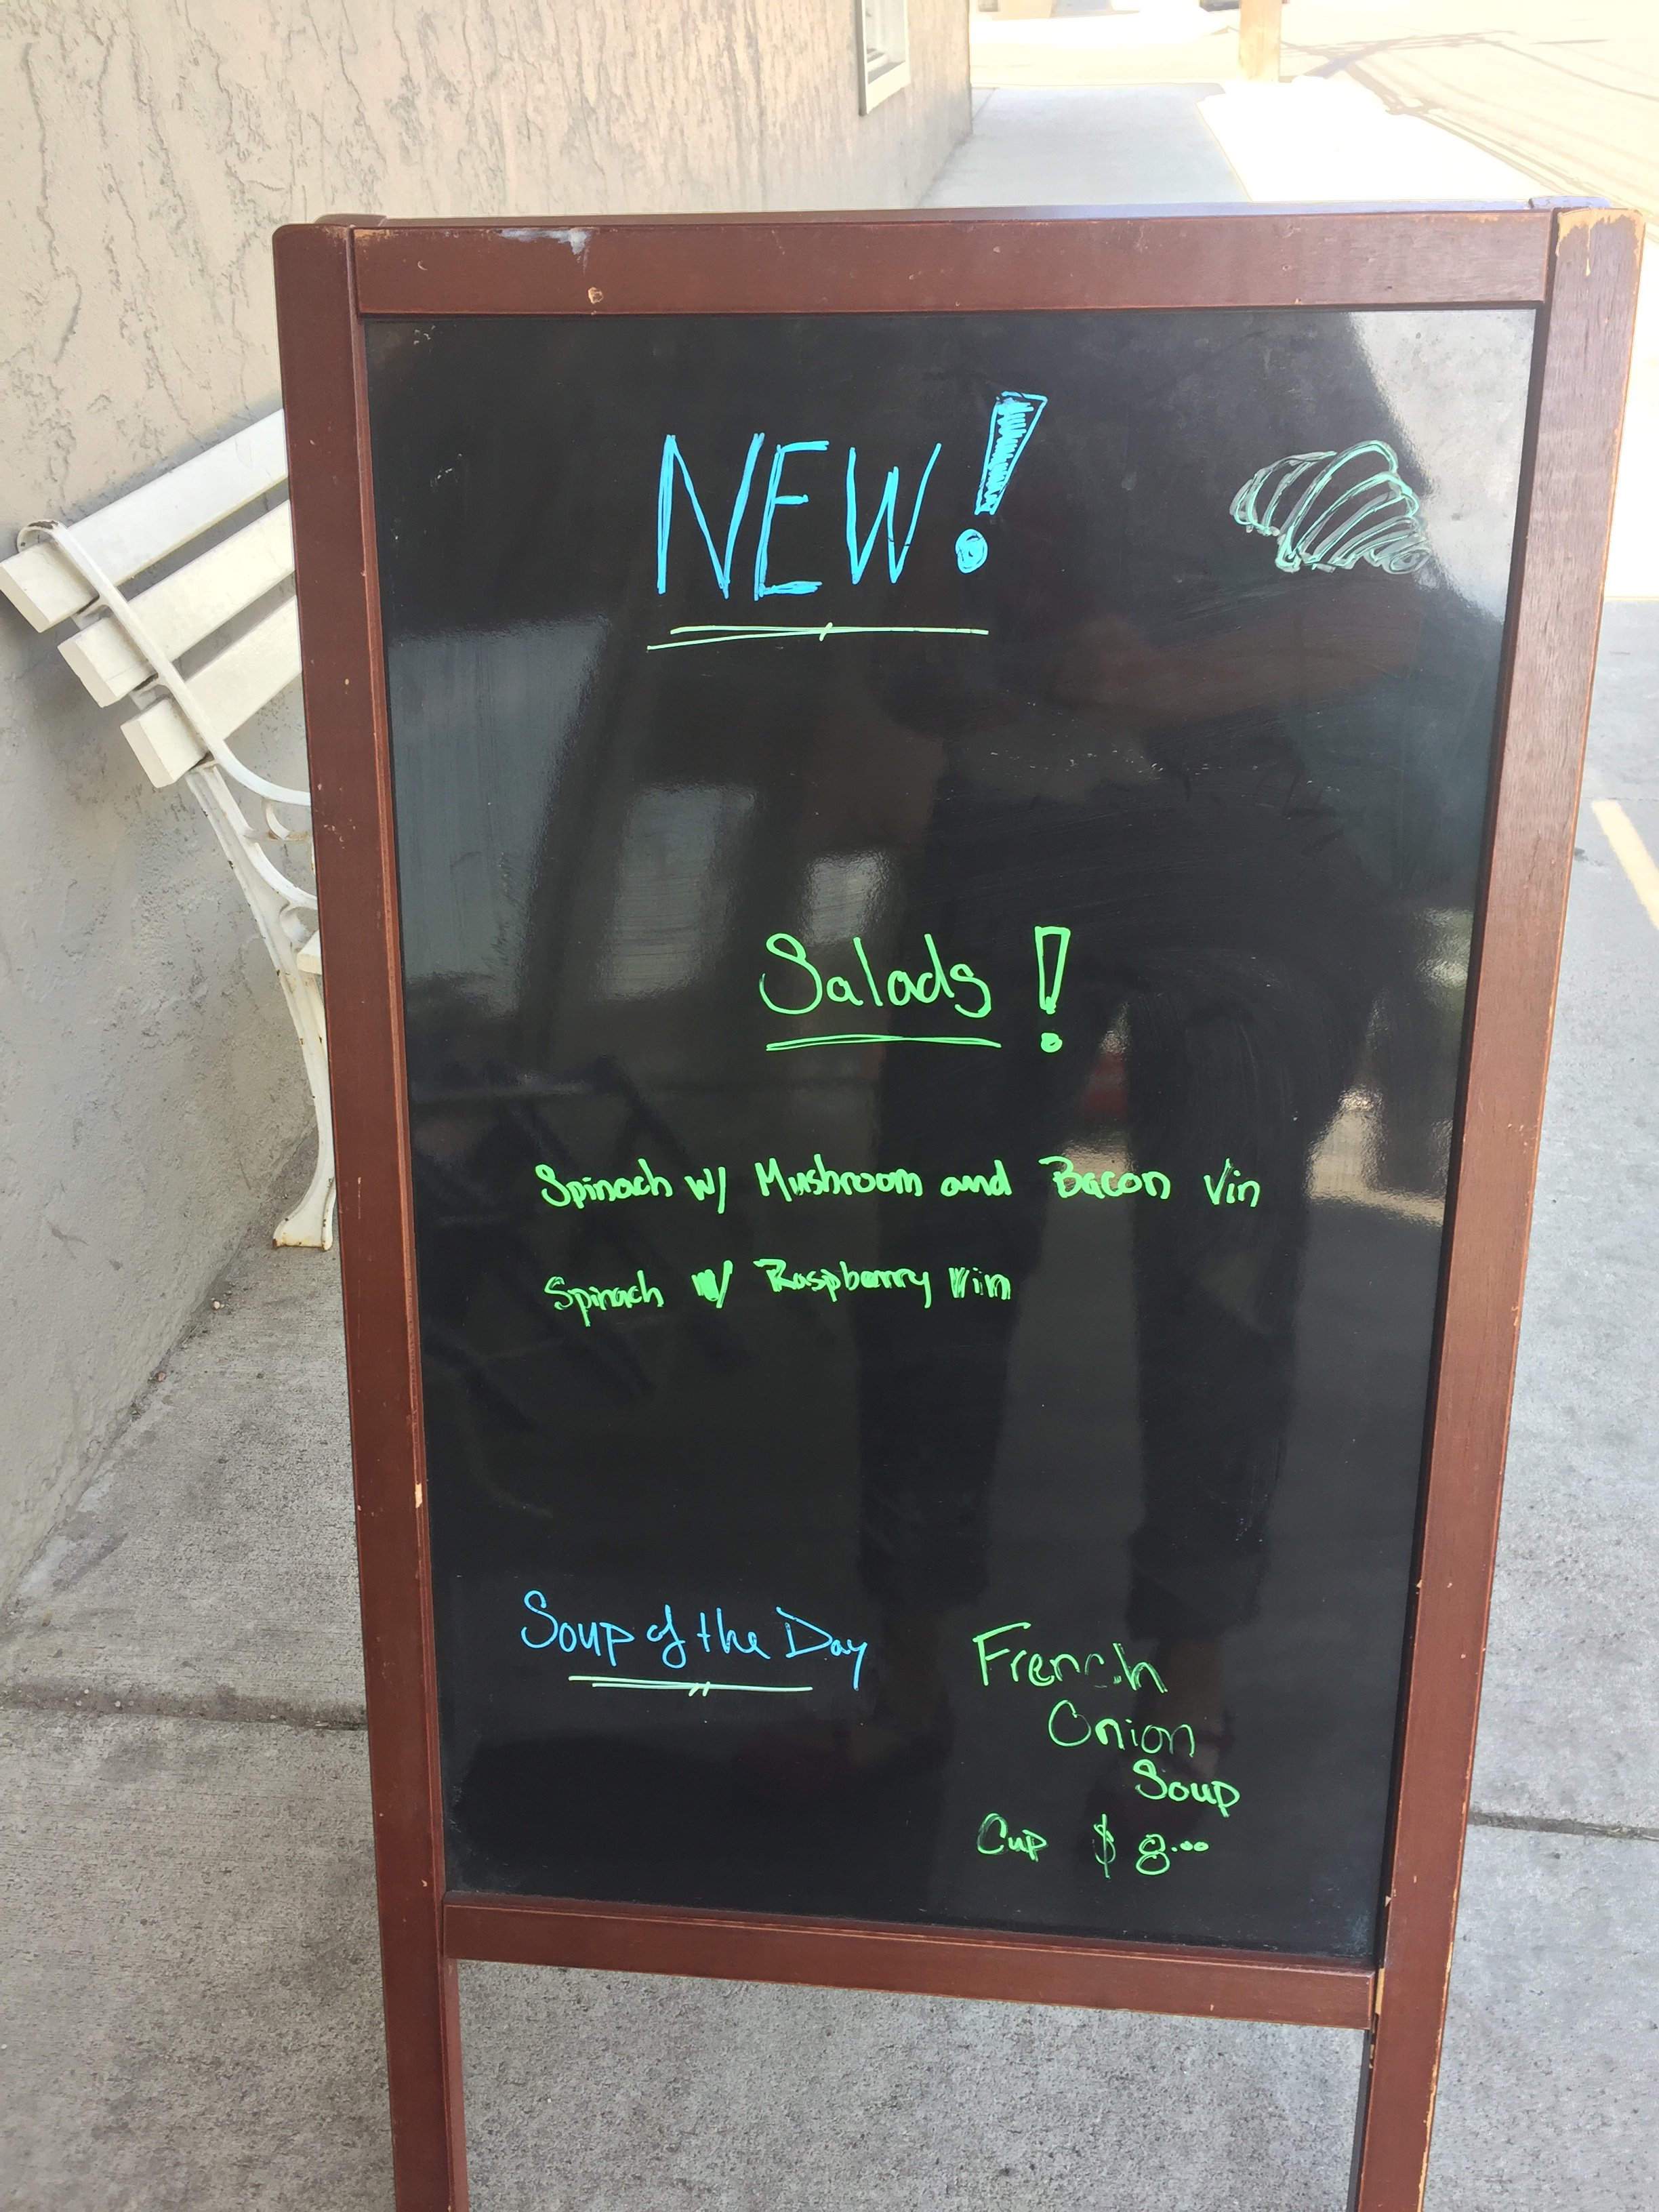 NEW!
Salads!
Spinach w/ Mushroom and Bacon Vin
Spinach w/ Raspberry Vin
Soup of the Day
French
Onion
Soup
Cup $8.00